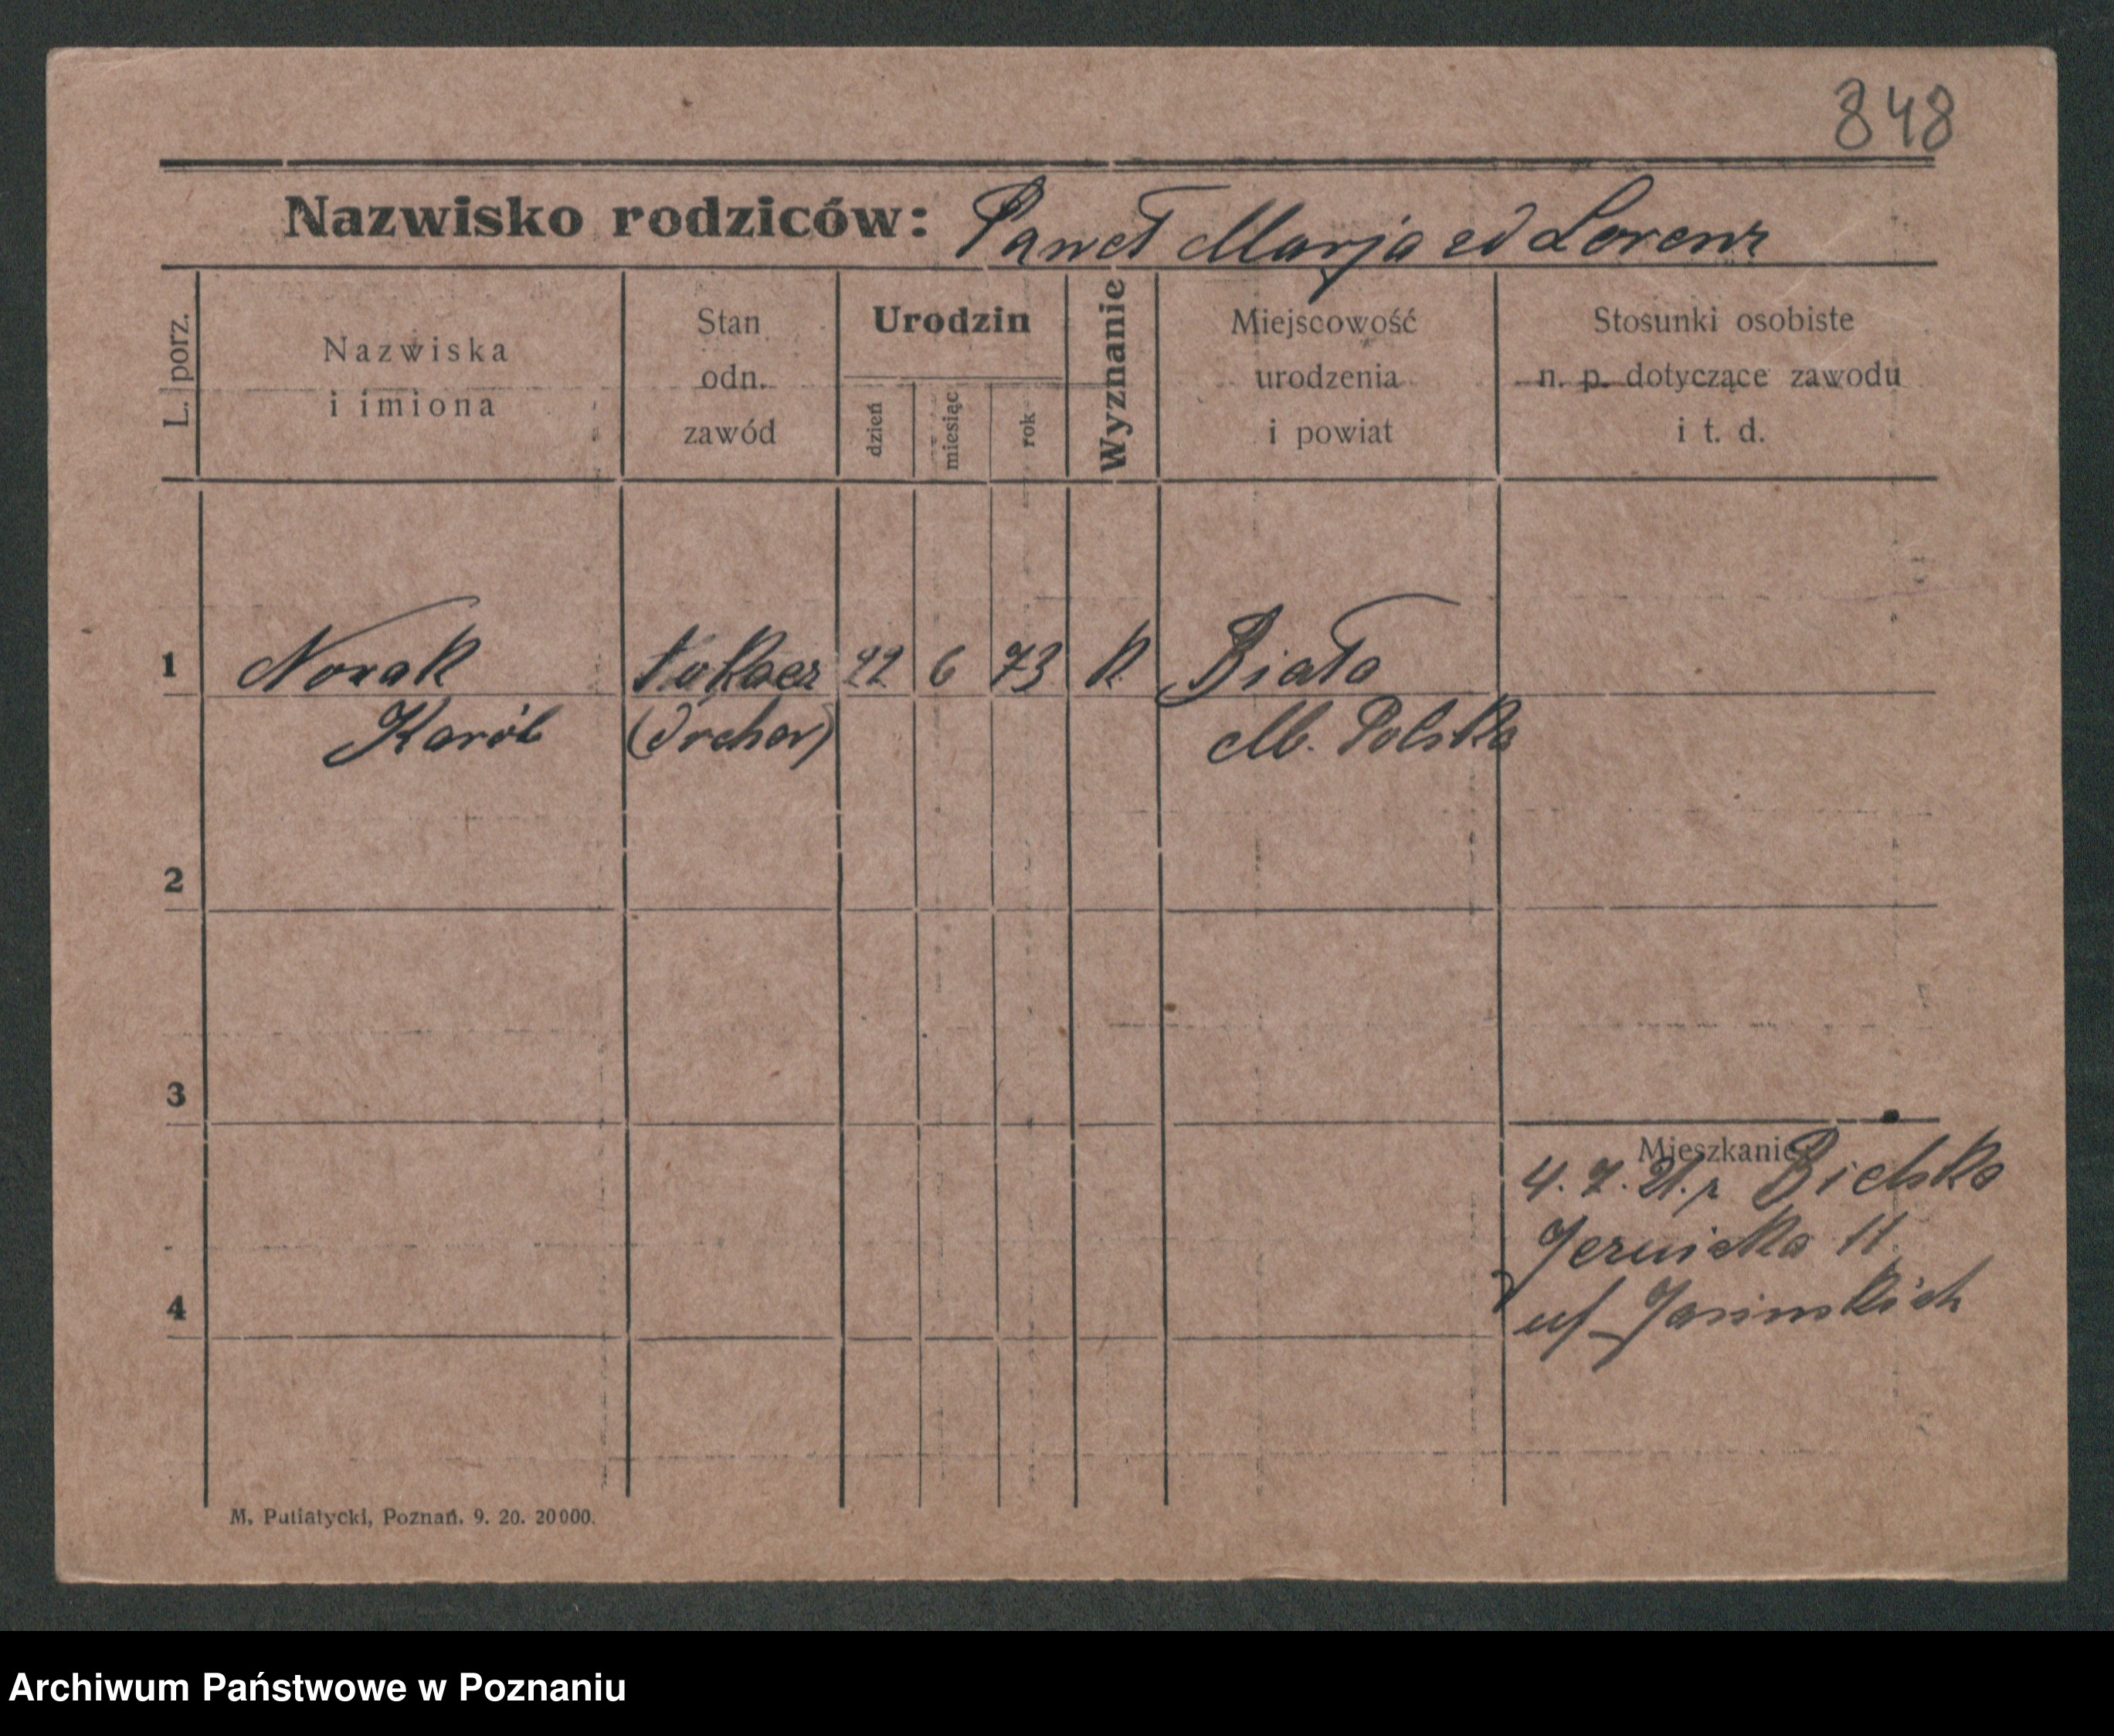 848
Nazwisko rodziców: Paweł Marja zd Lorenz
L. porz.
Nazwiska
i imiona
Stan
odn.
zawód
Urodzin
dzień
miesiąc
rok
Wyznanie
Miejscowość
urodzenia
i powiat
Stosunki osobiste
n. p. dotyczące zawodu
i t. d.
1 Nowak 22 6 73 k Biała
Karól Mł. Polska
2
3
4
Mieszkanie
4. 7. 21. Bielska
11
Jasińskich
M. Putiatycki, Poznań. 9. 20. 20000.
Archiwum Państwowe w Poznaniu